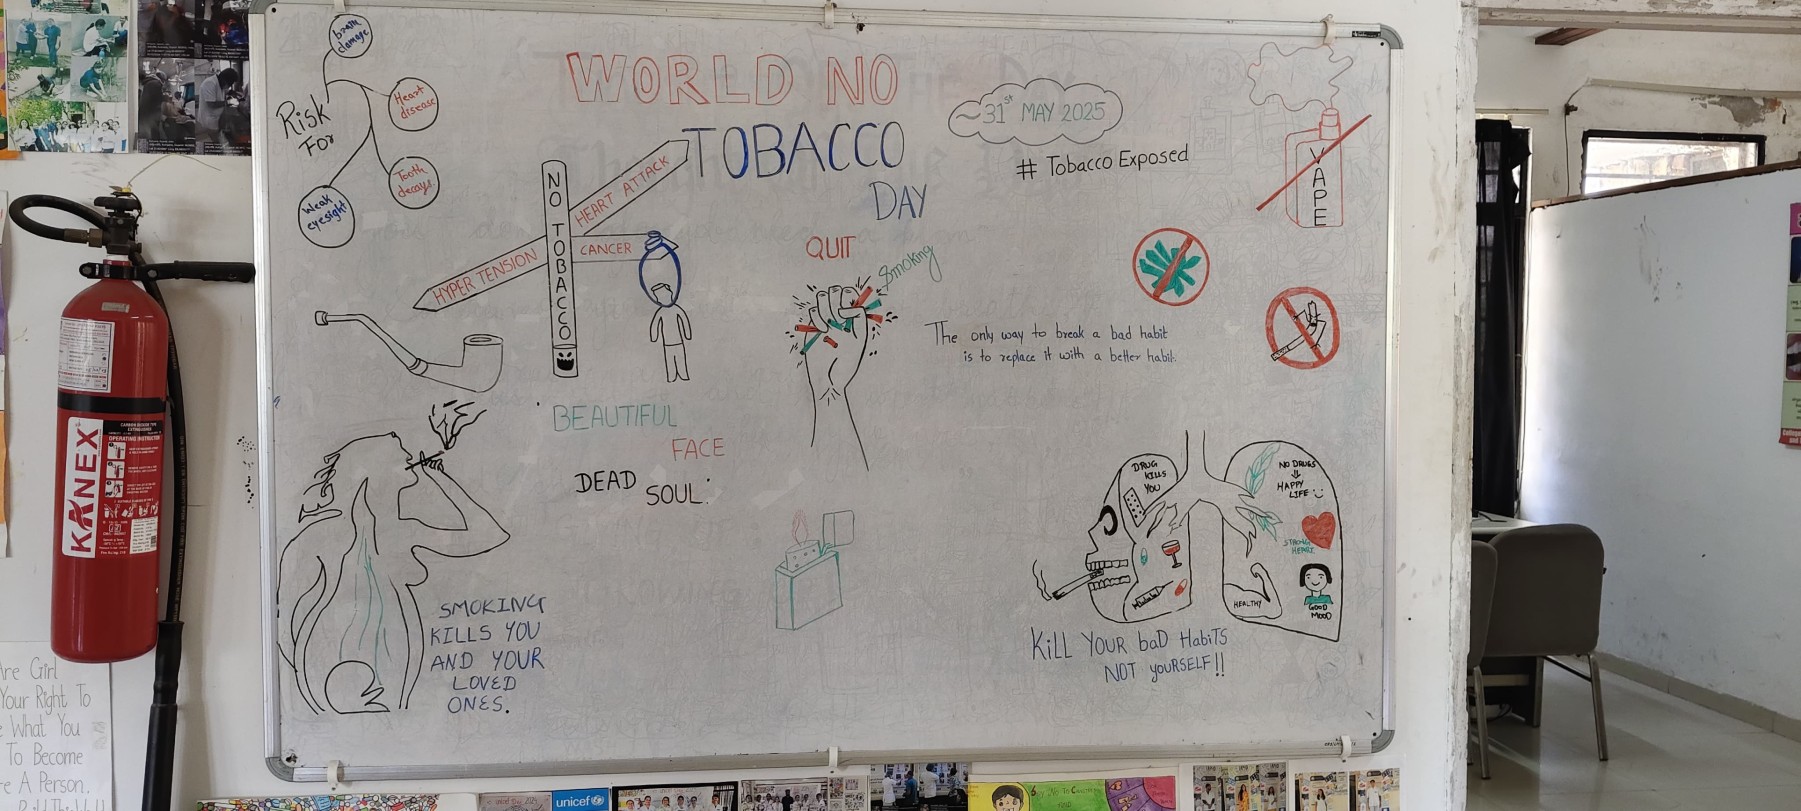 brain
damage
Heart
disease
Risk
For
Tooth
decays
Weak
eyesight
WORLD NO
TOBACCO
DAY
~31st MAY 2025
# Tobacco Exposed
VAPE
NO TOBACCO
HEART ATTACK
CANCER
HYPER TENSION
QUIT
Smoking
The only way to break a bad habit
is to replace it with a better habit.
BEAUTIFUL
FACE
DEAD
SOUL
SMOKING
KILLS YOU
AND YOUR
LOVED
ONES.
DRUG
KILLS
YOU
NO DRUGS
HAPPY
LIFE
STRONG
HEART
HEALTHY
GOOD
MOOD
KiLL YOUR baD HabiTS
NOT yOURSELF!!
KANEX
CARBON DIOXIDE TYPE
EXTINGUISHER
OPERATING
Are Girl
Your Right To
What You
To Become
A Person.
unicef